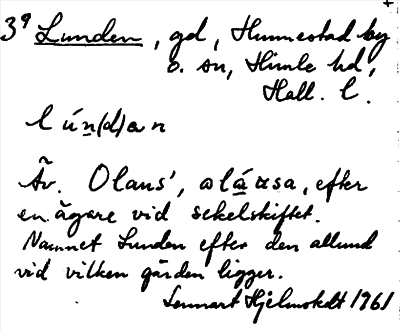 3⁹ Lunden, gd, Hunnestad by
o. sn, Himle hd,
Hall. l.
lún(d)an
Äv. Olaus', olása, efter
en ägare vid sekelskiftet.
Namnet Lunden efter den allund
vid vilken gården ligger.
Lennart Hjelmstedt 1961